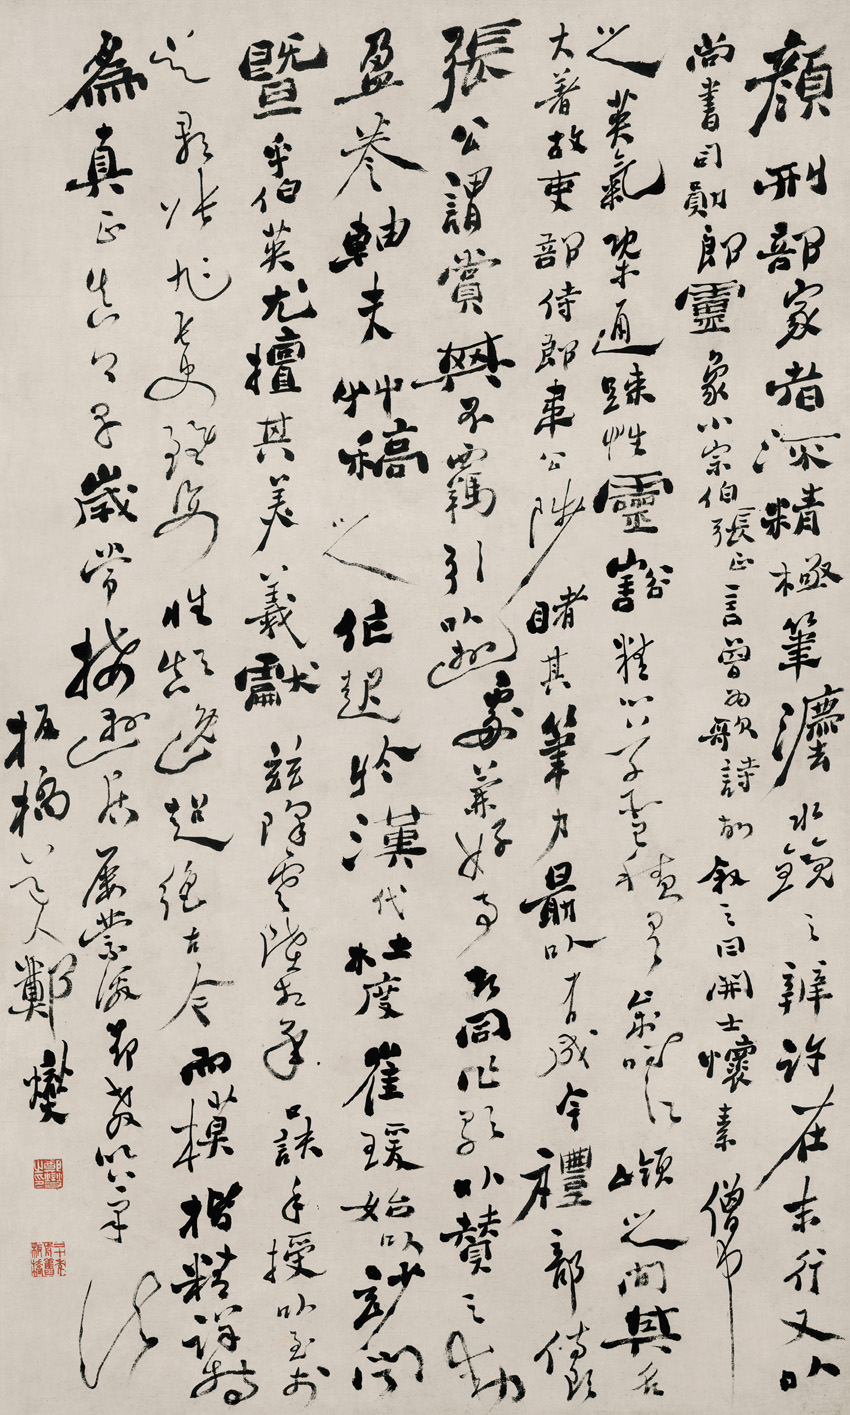 顏刑部家者深精極筆灋水鏡之辨許在末行又以
尚書司勳郎靈象小宗伯張正言曾為歌詩故敘之曰開士懷素僧中
之英氣槩通疎性靈豁精心草聖積有歲時江嶺之間其名
大著故吏部侍郎韋公陟睹其筆力勗以有成今禮部侍郎
張公謂賞其不羈引以遊處兼好事者同作歌以贊之動
盈卷軸夫艸稿之作起於漢代杜度崔瑗始以妙聞
暨乎伯英尤擅其美羲獻茲降虞陸相承口訣手授以至於
吳郡張旭長史雖姿性顛逸超絕古今而模楷精詳特
為真正真卿早歲常接遊居屢蒙激昂教以筆法
板橋道人鄭燮
鄭燮之印
二十年前舊板橋